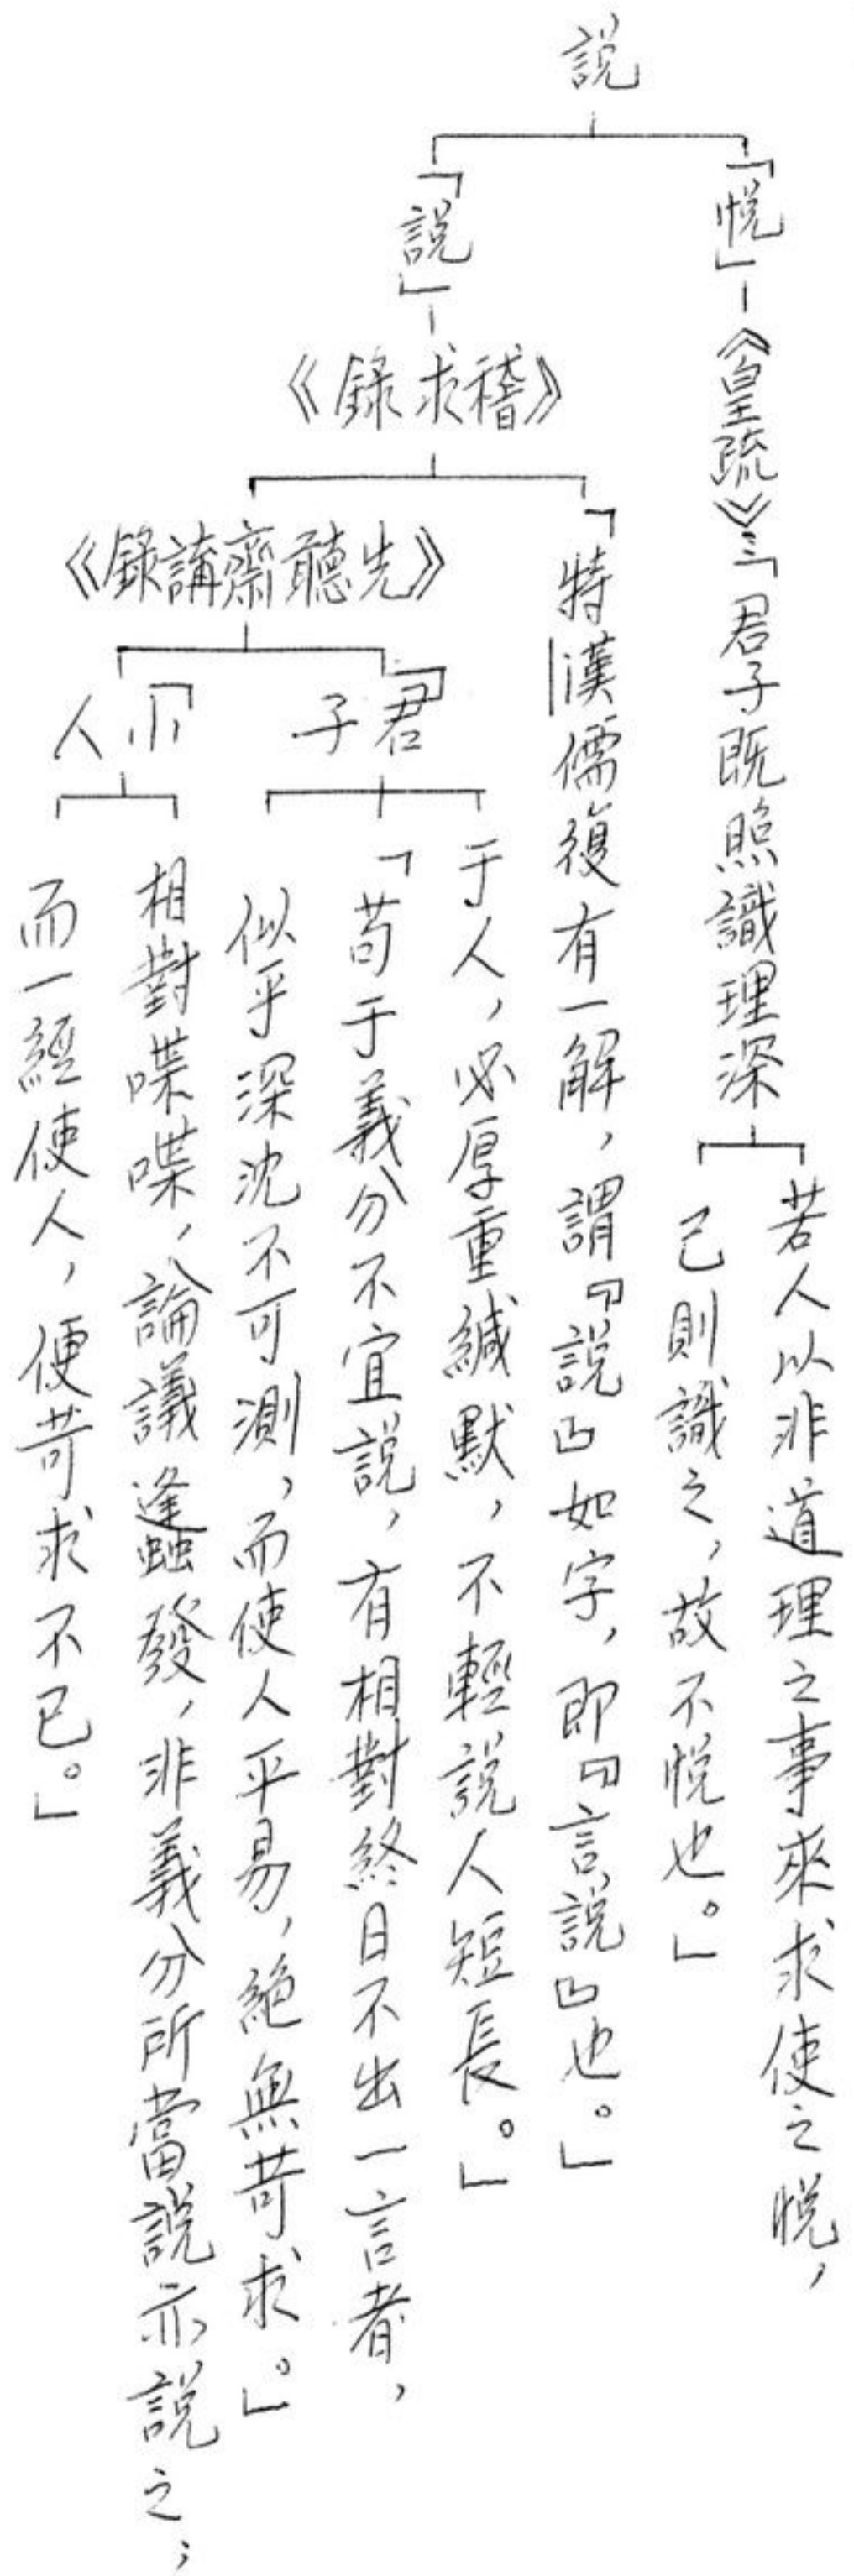 説
「悅」
《皇疏》：「君子既照識理深
若人以非道理之事來求使之悅，
己則識之，故不悅也。」
「説」
《稽求錄》
「特漢儒復有一解，謂『説』如字，即『言説』也。」
《先聽齋講錄》
「君子
于人，必厚重緘默，不輕説人短長。」
「苟于義分不宜説，有相對終日不出一言者，
似乎深沈不可測，而使人平易，絶無苛求。」
「小人
相對喋喋，論議蠭發，非義分所當説亦説之；
而一經使人，便苛求不已。」